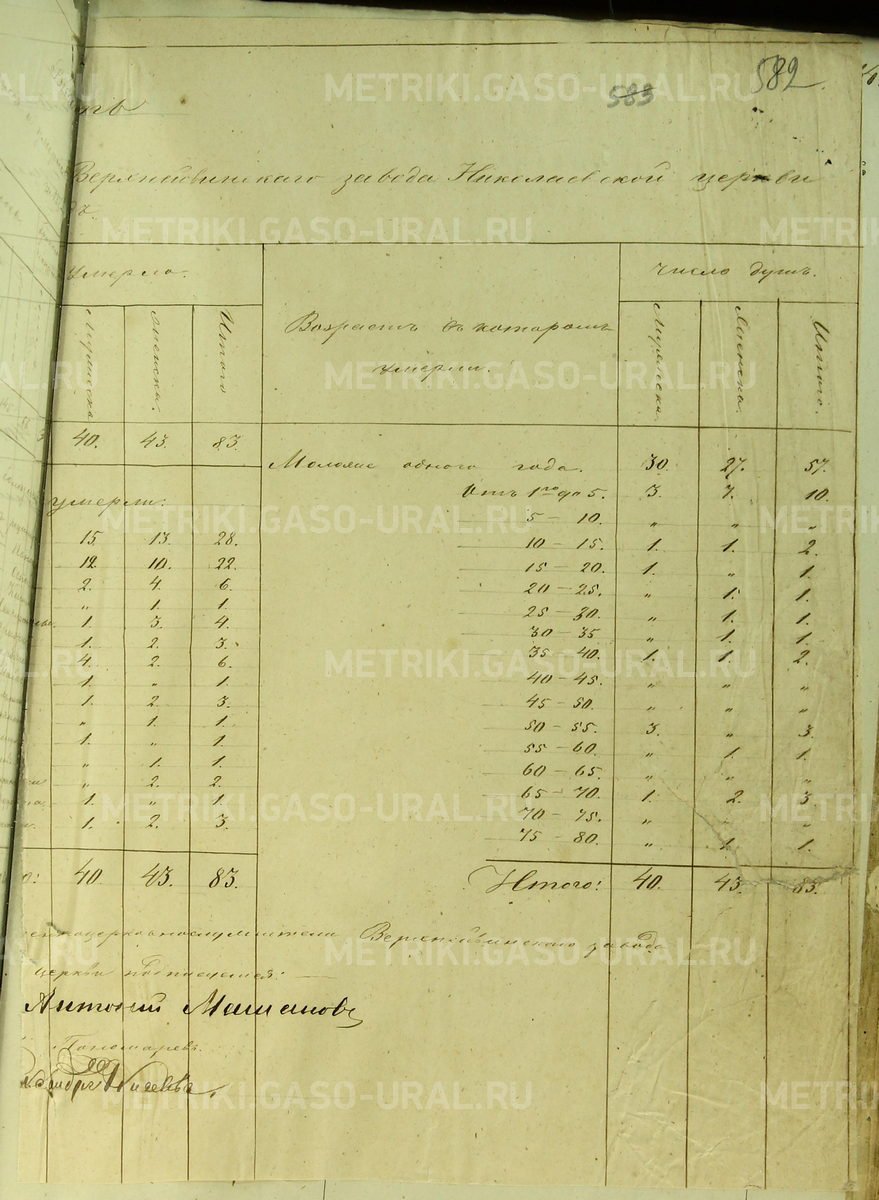 582.
583
Верхнейвинскаго завода Николаевской церкви
умерло.
Возрастъ въ которомъ умерли.
Число душъ.
Мужеска. Женска. Итого
Мужеска. Женска. Итого.
40. 43. 83.
Моложе одного года. 30. 27. 57.
умерли: Отъ 1го до 5. 3. 7. 10.
5 – 10. „ „ „
15. 13. 28. 10 – 15. 1. 1. 2.
12. 10. 22. 15 – 20. 1. „ 1.
2. 4. 6. 20 – 25. „ 1. 1.
„ 1. 1. 25 – 30. „ 1. 1.
1. 3. 4. 30 – 35 „ 1. 1.
1. 2. 3. 35 – 40. 1. 1. 2.
4. 2. 6. 40 – 45. „ „ „
1. „ 1. 45 – 50. „ „ „
1. 2. 3. 50 – 55. 3. „ 3.
„ 1. 1. 55 – 60. „ 1. 1.
1. „ 1. 60 – 65. „ „ „
„ 1. 1. 65 – 70. 1. 2. 3.
„ 2. 2. 70 – 75. „ „ „
1. „ 1. 75 – 80. „ 1. 1.
1. 2. 3.
40. 43. 83. Итого: 40. 43. 83.
Верхнейвинскаго завода
церкви подписуемся:
Антоній
Пономарь
METRIKI.GASO-URAL.RU